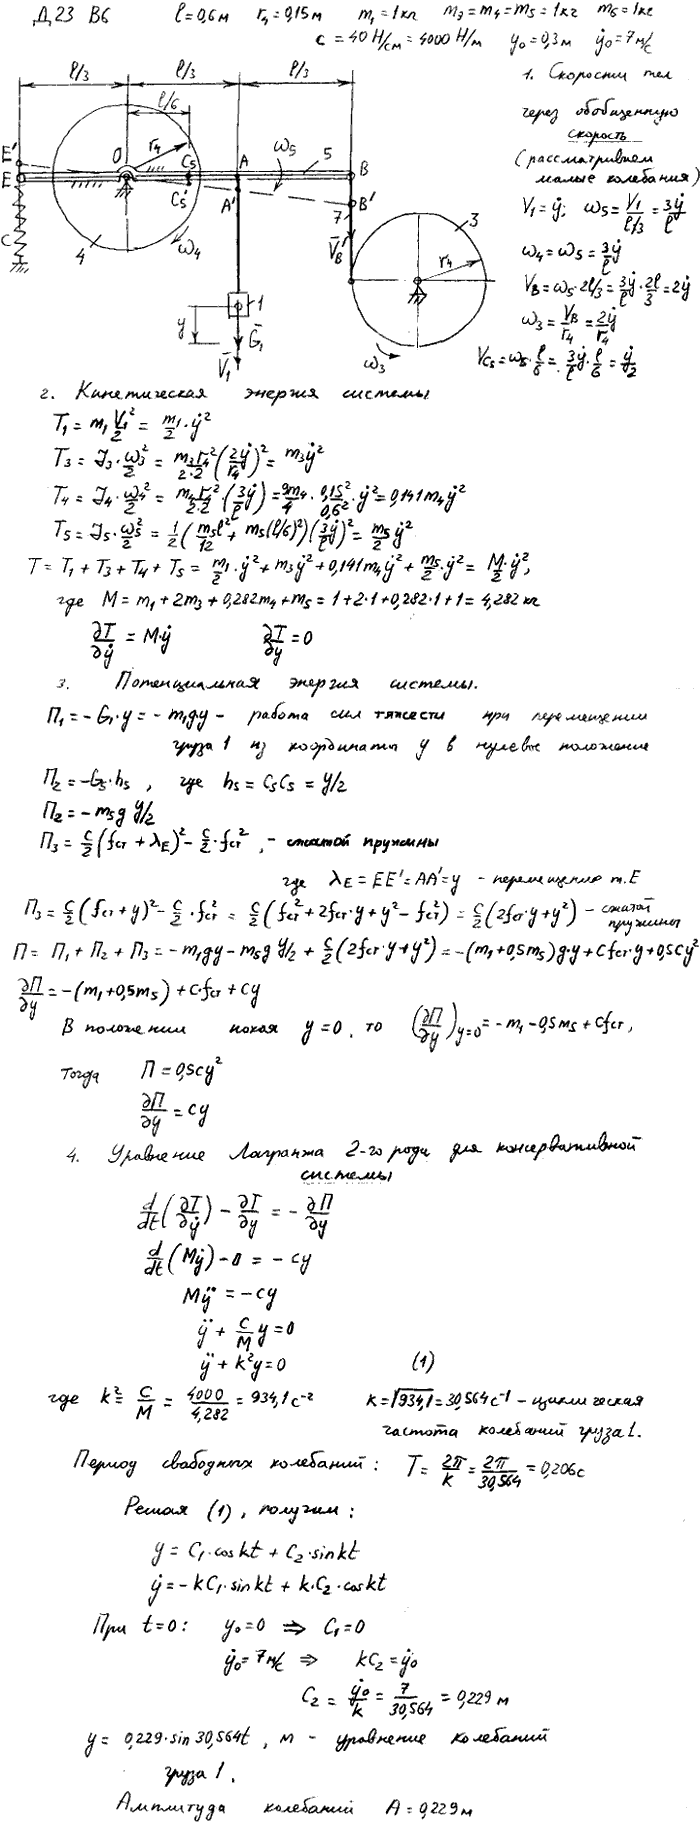 Д23 В6 l=0,6м r₄=0,15м m₁=1кг m₃=m₄=m₅=1кг m₆=1кг
c=40 Н/см=4000 Н/м y₀=0,3м ẏ₀=7м/с
l/3 l/3 l/3
l/6
1. Скорости тел
через обобщенную
скорость
(рассматриваем
малые колебания)
E' O r₄ C₅ A ω₅ 5 B
E C₅' A' B'
C 4 ω₄ 7 V̄_B 3 r₄
y 1 Ḡ₁ V̄₁ ω₃
V₁=ẏ; ω₅=V₁/(l/3)=3ẏ/l
ω₄=ω₅=3ẏ/l
V_B=ω₅·2l/3=3ẏ/l·2l/3=2ẏ
ω₃=V_B/r₄=2ẏ/r₄
V_C₅=ω₅·l/6=3ẏ/l·l/6=ẏ/2
2. Кинетическая энергия системы
T₁=m₁V₁²/2=m₁/2·ẏ²
T₃=J₃·ω₃²/2=m₃r₄²/2·2(2ẏ/r₄)²=m₃ẏ²
T₄=J₄·ω₄²/2=m₄r₄²/2·2·(3ẏ/l)=9m₄/4·0,15²/0,6²·ẏ²=0,141m₄ẏ²
T₅=J₅·ω₅²/2=1/2(m₅l²/12+m₅(l/6)²)(3ẏ/l)²=m₅/2ẏ²
T=T₁+T₃+T₄+T₅=m₁/2·ẏ²+m₃ẏ²+0,141m₄ẏ²+m₅/2·ẏ²=M/2·ẏ²,
где M=m₁+2m₃+0,282m₄+m₅=1+2·1+0,282·1+1=4,282кг
∂T/∂ẏ=M·ẏ ∂T/∂y=0
3. Потенциальная энергия системы.
П₁=-G₁·y=-m₁gy - работа сил тяжести при перемещении
груза 1 из координаты y в нулевое положение
П₂=-G₅·h₅, где h₅=C₅C₅=y/2
П₂=-m₅g y/2
П₃=c/2(fст+λ_E)²-c/2·fст², - сжатой пружины
где λ_E=EE'=AA'=y - перемещение т.E
П₃=c/2(fст+y)²-c/2·fст²=c/2(fст²+2fст·y+y²-fст²)=c/2(2fст·y+y²) - сжатой
пружины
П=П₁+П₂+П₃=-m₁gy-m₅g y/2+c/2(2fст·y+y²)=-(m₁+0,5m₅)g·y+cfст·y+0,5cy²
∂П/∂y=-(m₁+0,5m₅)+c·fст+cy
В положении покоя y=0, то (∂П/∂y)y=0=-m₁-0,5m₅+cfст,
тогда П=0,5cy²
∂П/∂y=cy
4. Уравнение Лагранжа 2-го рода для консервативной
системы
d/dt(∂T/∂ẏ)-∂T/∂y=-∂П/∂y
d/dt(Mẏ)-0=-cy
Mÿ=-cy
ÿ+c/M y=0
ÿ+k²y=0 (1)
где k²=c/M=4000/4,282=934,1c⁻² k=√934,1=30,564c⁻¹ - циклическая
частота колебаний груза 1.
Период свободных колебаний: T=2π/k=2π/30,564=0,206с
Решая (1), получим:
y=C₁·coskt+C₂·sinkt
ẏ=-kC₁·sinkt+k·C₂·coskt
При t=0: y₀=0 ⇒ C₁=0
ẏ₀=7м/с ⇒ kC₂=ẏ₀
C₂=ẏ₀/k=7/30,564=0,229м
y=0,229·sin30,564t, м - уравнение колебаний
груза 1.
Амплитуда колебаний A=0,229м